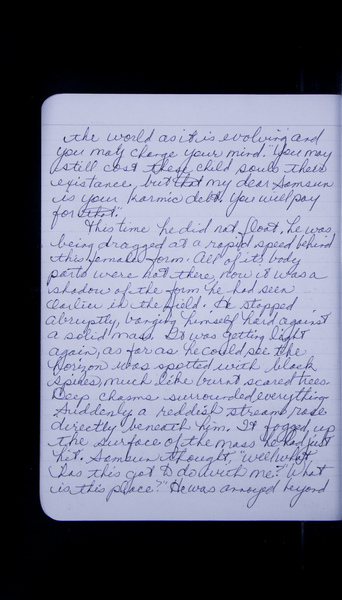 the world as it is evolving and
you may change your mind." You may
still cost these child souls their
existance, but that my dear Somsun
is your karmic debt. You will pay
for that."
This time he did not float, he was
being dragged at a rapid speed behind
this female form. All of its body
parts were not there, now it was a
shadow of the form he had seen
earlier in the field. It stopped
abruptly, banging himself hard against
a solid mass. It was getting light
again, as far as he could see the
horizon was spotted with black
spikes, much like burnt scared trees.
Deep chasms surrounded everything
Suddenly a reddish stream rose
directly beneath him. It fogged up
the surface of the mass he had just
hit. Somsun thought, "well what
has this got to do with me?" What
is this place?" He was annoyed beyond